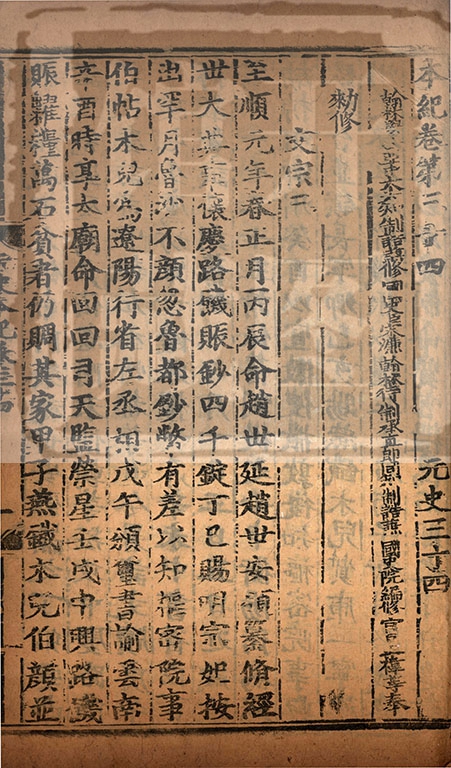 本紀卷第三十四 元史三十四
翰林學士 制誥兼修國史臣宋濂翰林待制承直郎同知制誥兼國史院編修官臣王禕等奉
勑修
文宗三
至順元年春正月丙辰命趙世延趙世安領纂脩經
世大典事懷慶路饑賑鈔四千錠丁巳賜明宗妃按
出罕月魯沙不顏忽魯都鈔幣有差以知樞密院事
伯帖木兒爲遼陽行省左丞相戊午頒璽書諭雲南
辛酉時享太廟命回回司天監禜星壬戌中興路饑
賑糶糧萬石貧者仍賙其家甲子燕鐵木兒伯顏並